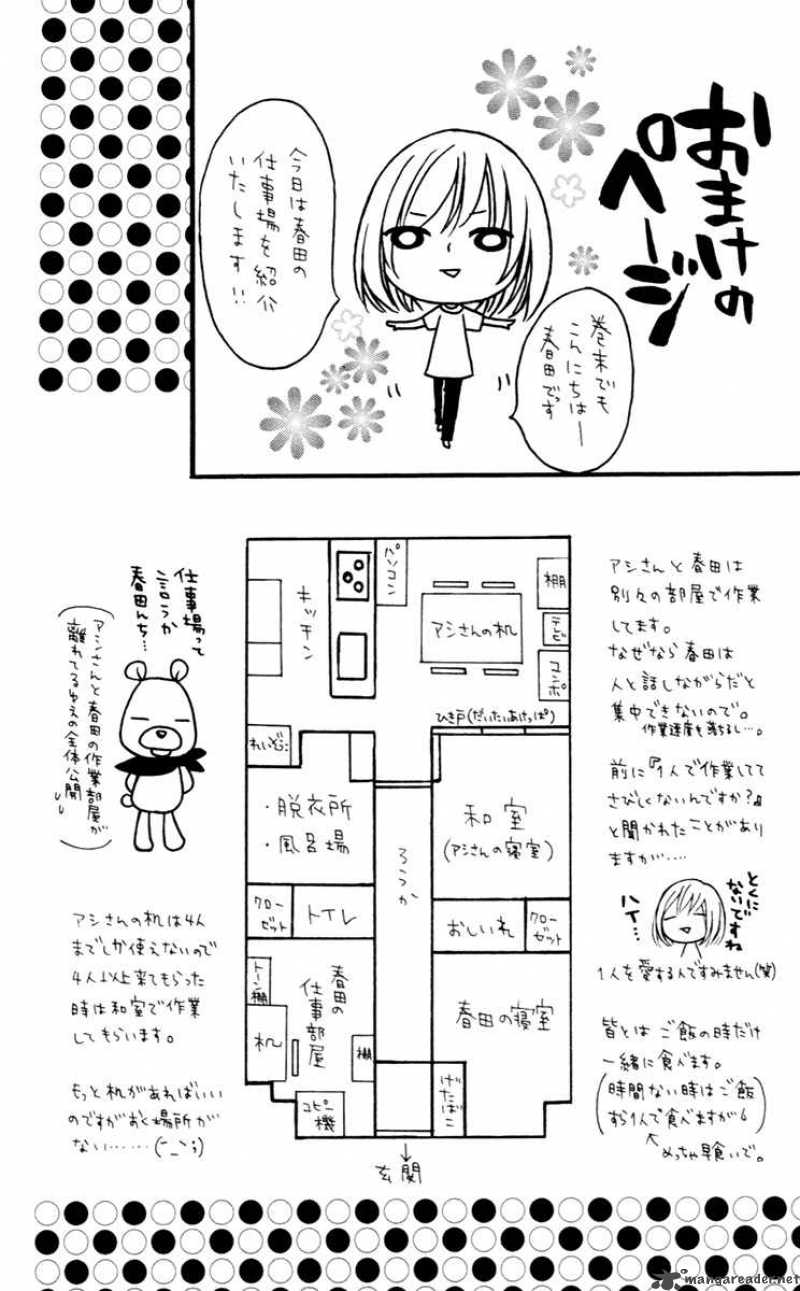 おまけの
ページ
巻末でも
こんにちはー
春田でっす
今日は春田の
仕事場を紹介
いたします!!
アシさんと春田は
別々の部屋で作業
してます。
なぜなら春田は
人と話しながらだと
集中できないので。
作業速度も落ちるし…。
前に『1人で作業してて
さびしくないんですか?』
と聞かれたことがあり
ますが‥‥
とくに
ないですね
ハイ…
1人を愛する人ですみません(笑)
皆とは ご飯の時だけ
一緒に食べます。
(時間ない時はご飯
すら1人で食べますが)
めっちゃ早食いで。
キッチン
パソコン
アシさんの机
棚
テレビ
コンポ
ひき戸(だいたいあけっぱ)
れいぞうこ
・脱衣所
・風呂場
ろうか
和室
(アシさんの寝室)
クローゼット
トイレ
おしいれ
クローゼット
トーン棚
春田の
仕事部屋
机
棚
コピー機
春田の寝室
げたばこ
↓
玄関
仕事場って
言うか
春田んち…
(アシさんと春田の作業部屋が
離れてるゆえの全体公開)
アシさんの机は4人
までしか使えないので
4人以上来てもらった
時は和室で作業
してもらいます。
もっと机があればいい
のですがおく場所が
ない……(´_`;)
mangareader.net